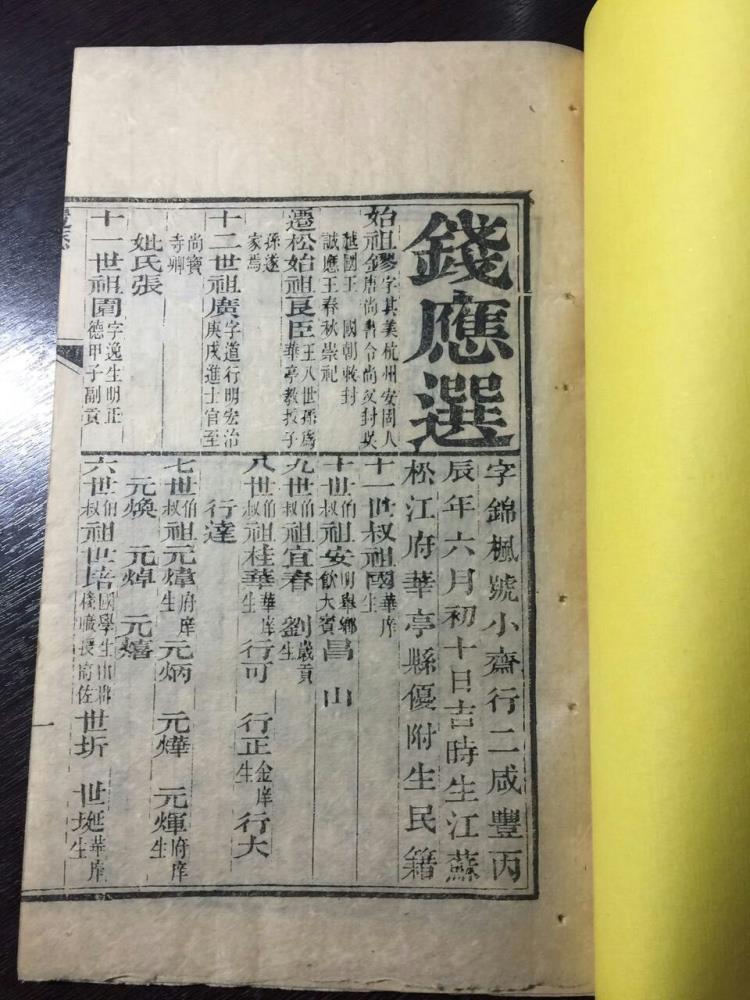 錢應選
字錦楓號小齋行二咸豐丙
辰年六月初十日吉時生江蘇
松江府華亭縣優附生民籍
始祖鏐字其美杭州安固人
唐尚書令尚父封吳
越國王 國朝敕封
誠應王春秋崇祀
遷松始祖良臣王八世孫爲
華亭教授子
孫遂
家焉
十二世祖廣字道行明宏治
庚戌進士官至
尚寶
寺卿
妣氏張
十一世祖圊字逸生明正
德甲子副貢
十一世叔祖國華庠
生
十世叔祖安明舉鄉
飲大賓昌山
九世伯
叔祖宜春 劉歲貢
生
八世伯
叔祖桂華華庠
生 行可 行正金庠
生 行大
行達
七世伯
叔祖元煒府庠
生 元炳 元燁 元煇府庠
生
元煥 元焯 元熺
六世伯
叔祖世培國學生
棧職授高佐 世圻 世埏華庠
生
一